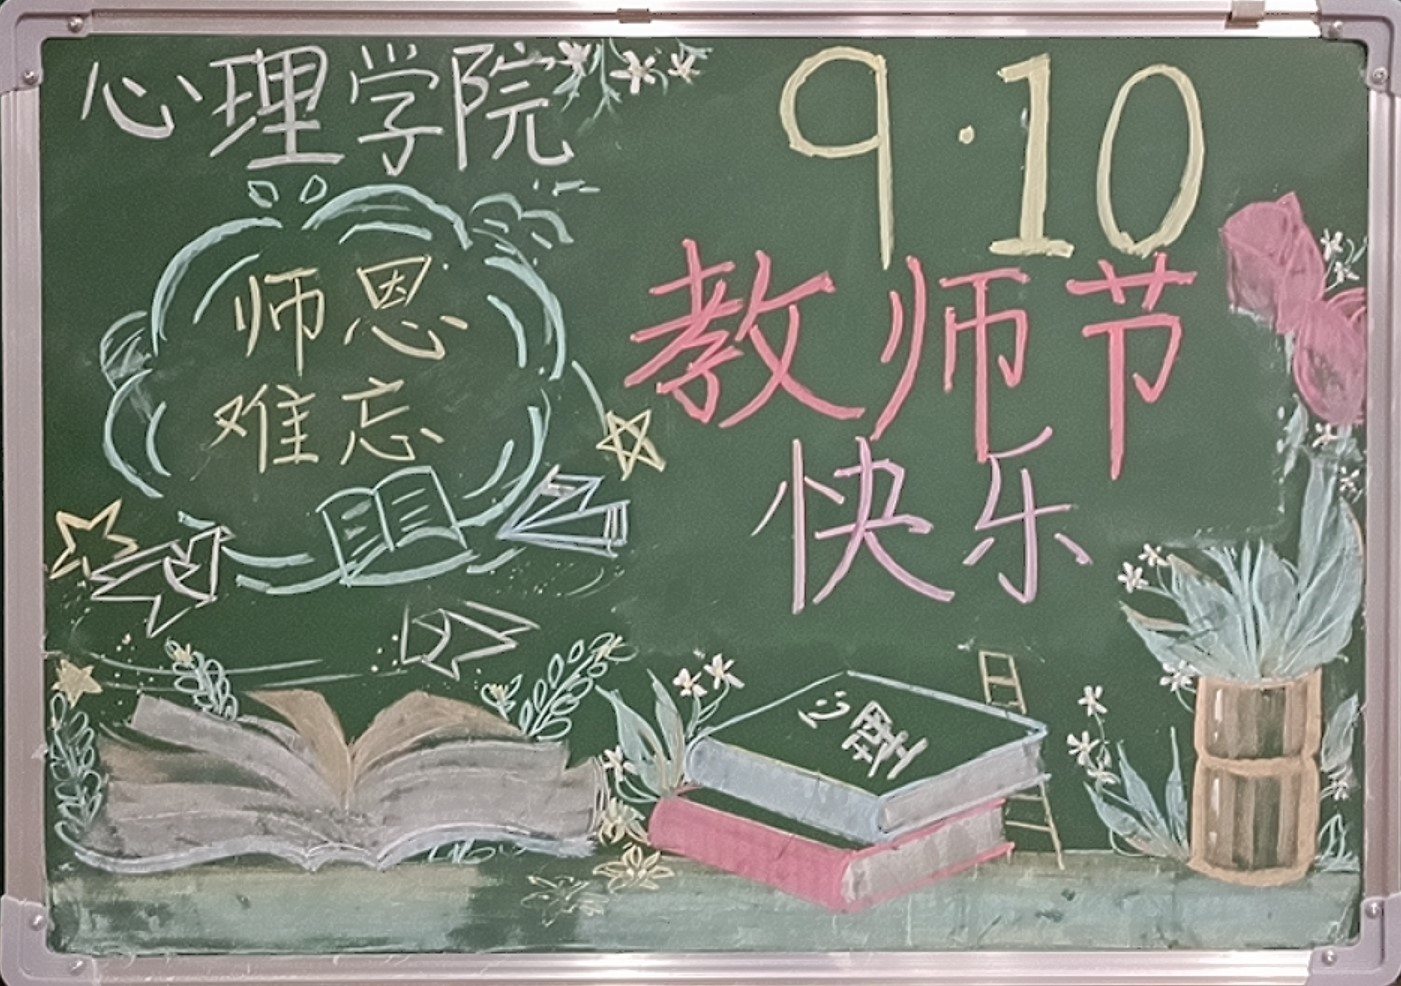 心理学院
9·10
师恩
难忘
教师节
快乐
心理